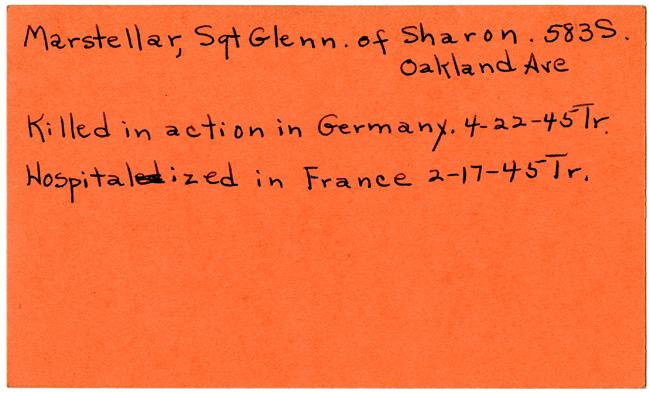 Marstellar, Sgt Glenn. of Sharon. 583 S.
Oakland Ave
Killed in action in Germany. 4-22-45 Tr.
Hospitalized in France 2-17-45 Tr.